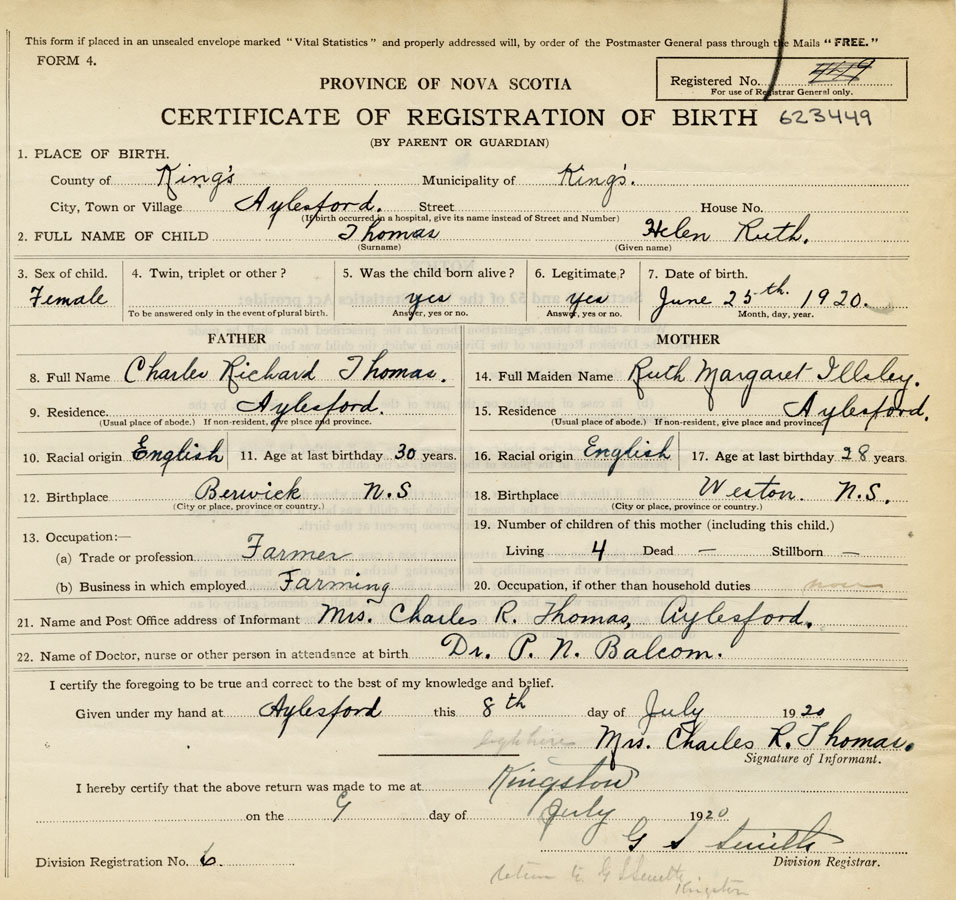 This form if placed in an unsealed envelope marked "Vital Statistics" and properly addressed will, by order of the Postmaster General pass through the Mails "FREE."
FORM 4.
Registered No. 449
For use of Registrar General only.
PROVINCE OF NOVA SCOTIA
CERTIFICATE OF REGISTRATION OF BIRTH 623449
(BY PARENT OR GUARDIAN)
1. PLACE OF BIRTH.
County of King's Municipality of King's.
City, Town or Village Aylesford. Street House No.
(If birth occurred in a hospital, give its name instead of Street and Number)
2. FULL NAME OF CHILD Thomas Helen Ruth.
(Surname) (Given name)
3. Sex of child. 4. Twin, triplet or other? 5. Was the child born alive? 6. Legitimate? 7. Date of birth.
Female yes yes June 25th. 1920.
To be answered only in the event of plural birth. Answer, yes or no. Answer, yes or no. Month, day, year.
FATHER MOTHER
8. Full Name Charles Richard Thomas. 14. Full Maiden Name Ruth Margaret Illsley.
9. Residence. Aylesford. 15. Residence Aylesford.
(Usual place of abode.) If non-resident, give place and province. (Usual place of abode.) If non-resident, give place and province.
10. Racial origin English 11. Age at last birthday 30 years. 16. Racial origin English 17. Age at last birthday 28 years.
12. Birthplace Berwick N.S 18. Birthplace Weston. N.S.
(City or place, province or country.) (City or place, province or country.)
13. Occupation:— 19. Number of children of this mother (including this child.)
(a) Trade or profession Farmer Living 4 Dead — Stillborn —
(b) Business in which employed Farming 20. Occupation, if other than household duties none
21. Name and Post Office address of Informant Mrs. Charles R. Thomas, Aylesford.
22. Name of Doctor, nurse or other person in attendance at birth Dr. P. N. Balcom.
I certify the foregoing to be true and correct to the best of my knowledge and belief.
Given under my hand at Aylesford this 8th day of July 1920
Mrs. Charles R. Thomas.
Signature of Informant.
I hereby certify that the above return was made to me at Kingston
on the 9 day of July 1920
G S
Division Registration No. 6. Division Registrar.
return to G S
Kingston